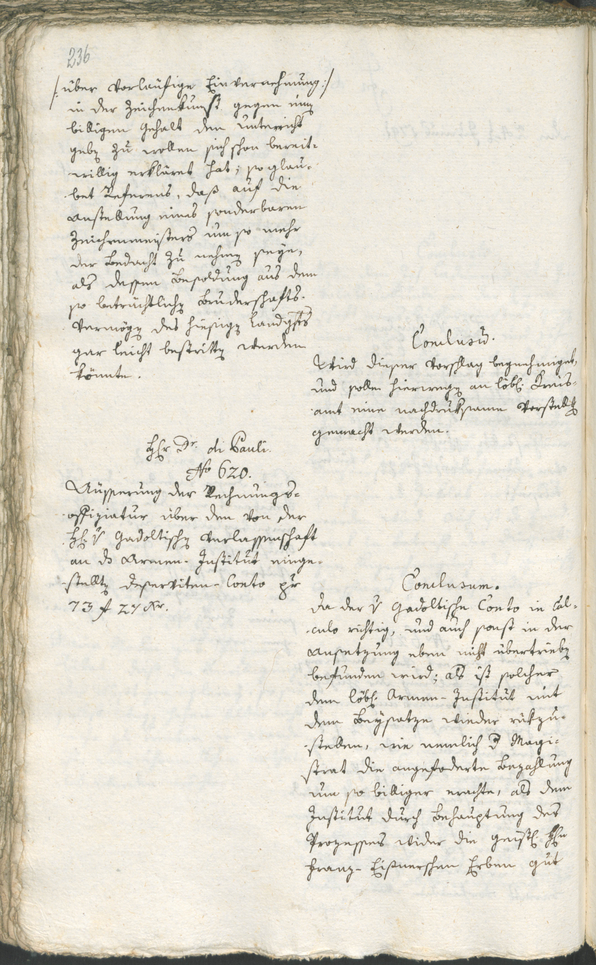 236
/: über vorläufige Einvernehmung :/
in der Zeichenkunst gegen einen
billigen Gehalt den Unterricht
geben zu wollen sich schon bereit-
willig erkläret hat; so glau-
bet Referens, daß auf die
Anstellung eines sonderbaren
Zeichenmeisters um so mehr
der Bedacht zu nehmen seye,
als dessen Besoldung aus dem
so beträchtlichen Bruderschafts-
Vermögen des hiesigen Landgchts
gar leicht bestritten werden
könnte.
Conclusum.
Wird dieser Vorschlag begnehmiget,
und solle hierwegen an löbl. Kreis-
amt eine nachdruksamme Vorstellung
gemacht werden.
Hr. Dr. di Pauli.
No 620.
Äusserung der Rechnungs-
offiziatur über den von der
Gadoltischen Verlassenschaft
an das Armen-Institut einge-
stellten Deserviten-Conto pr
73 f 27 Xr.
Conclusum.
Da der Gadoltische Conto in Cal-
culo richtig, und auch sonst in der
Ansetzung eben nicht übertrieben
befunden wird; als ist solcher
dem löbl. Armen-Institut mit
dem Beysatze wieder rükzu-
stellen, wie nemlich der Magi-
strat die angeforderte Bezahlung
um so billiger erachte, als dem
Institut durch Behauptung des
Prozesses wider die geistl. Hrn
Franz- Erben gut